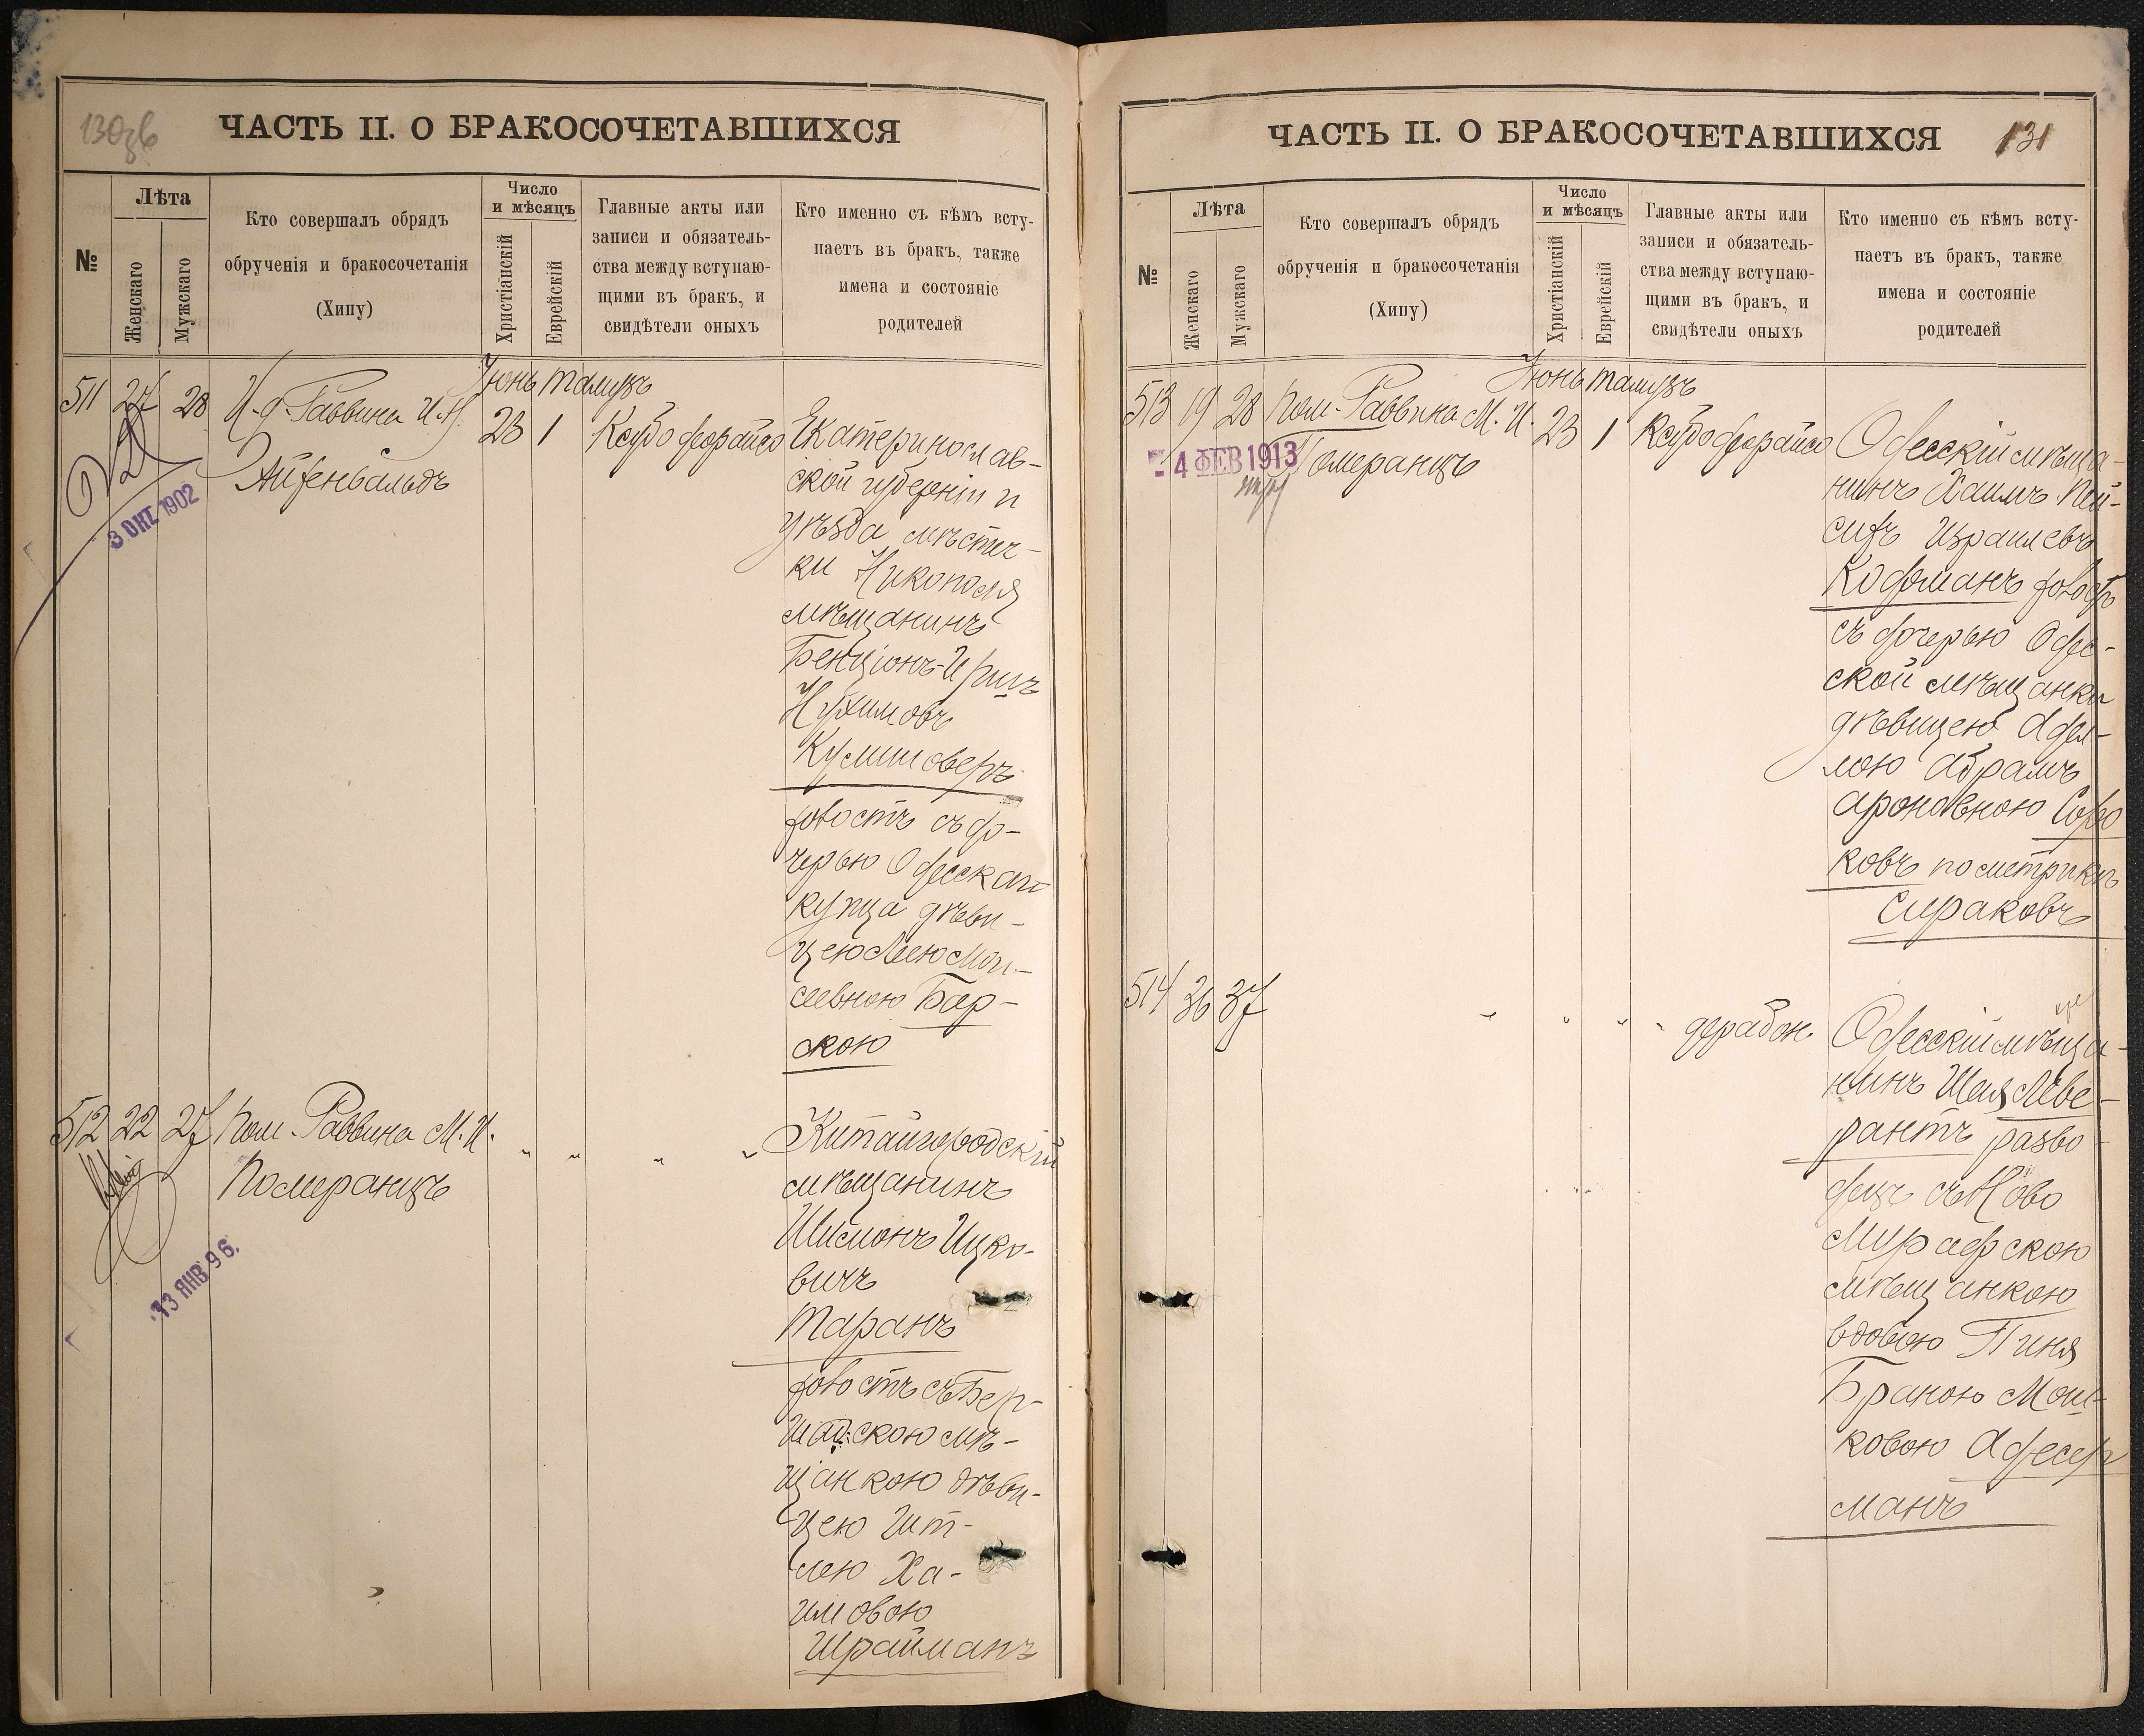 130об
ЧАСТЬ II. О БРАКОСОЧЕТАВШИХСЯ
№
Лѣта
Женскаго
Мужскаго
Кто совершалъ обрядъ
обрученія и бракосочетанія
(Хипу)
Число
и мѣсяцъ
Христіанскій
Еврейскій
Главные акты или
записи и обязатель-
ства между вступаю-
щими въ бракъ, и
свидѣтели оныхъ
Кто именно съ кѣмъ всту-
паетъ въ бракъ, также
имена и состояніе
родителей
Іюнь тамузъ
511 27 28 И. д. Раввина И. А.
Айзенвальдъ
23 1 Ксубо деорайсо
3 ОКТ 1902
Екатеринослав-
ской губерніи и
уѣзда мѣстеч-
ки Никополя
мѣщанинъ
Бенціонъ-Иршъ
Нухимовъ
Кушмоверъ
холостъ съ до-
черью Одесскаго
купца дѣви-
цею Леею Мои-
сеевною Бар-
скою
512 22 27 Пом. Раввина М. И.
Померанцъ
" " " "
13 ЯНВ 96.
Китайгородскій
мѣщанинъ
Шимонъ Ицко-
вичъ
Таранъ
холостъ съ Бер-
шадскою мѣ-
щанкою дѣви-
цею Ит-
лею Ха-
имовою
Шрайманъ
ЧАСТЬ II. О БРАКОСОЧЕТАВШИХСЯ
131
№
Лѣта
Женскаго
Мужскаго
Кто совершалъ обрядъ
обрученія и бракосочетанія
(Хипу)
Число
и мѣсяцъ
Христіанскій
Еврейскій
Главные акты или
записи и обязатель-
ства между вступаю-
щими въ бракъ, и
свидѣтели оныхъ
Кто именно съ кѣмъ всту-
паетъ въ бракъ, также
имена и состояніе
родителей
Іюнь тамузъ
513 19 28 Пом. Раввина М. И.
Померанцъ
23 1 Ксубо деорайсо
- 4 ФЕВ 1913
Одесскій мѣща-
нинъ Хаимъ Пей-
сихъ Израилевъ
Кофманъ холостъ
съ дочерью Одес-
ской мѣщанки
дѣвицею Адел-
лою Абрамъ
Ароновною Соро
ковъ по метрикѣ
Сираковъ
514 36 37 " " " " дерабон.
Одесскій мѣща-
нинъ Шая Леве-
рантъ разво-
децъ съ Ново
Мурафскою
мѣщанкою
вдовою Пиня
Браною Мош-
ковою Адесер
манъ